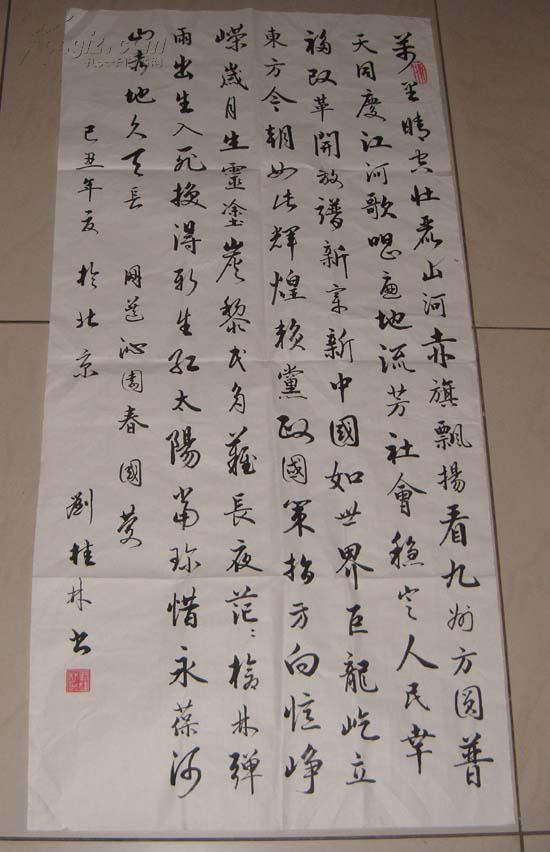 萬里晴空壯麗山河赤旗飄揚看九州方圓普
天同慶江河歌唱遍地流芳社會穩定人民幸
福改革開放譜新章新中國如世界巨龍屹立
東方今朝如此輝煌賴黨政國策指方向憶崢
嶸歲月生靈塗炭黎民多難長夜茫々槍林彈
雨出生入死換得新生紅太陽當珍惜永葆河
山秀地久天長 沁園春國慶
己丑年夏於北京 劉桂林書